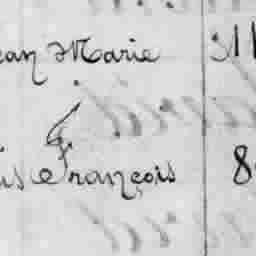 ean Marie 11
is François 8